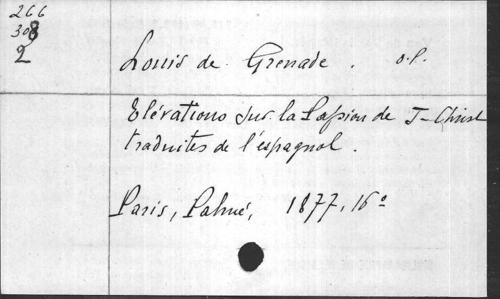 266
308
2
Louis de Grenade. o.p.
Elévations sur la Passion de J-Christ
traduites de l'espagnol.
Paris, Palmé, 1877, 16°